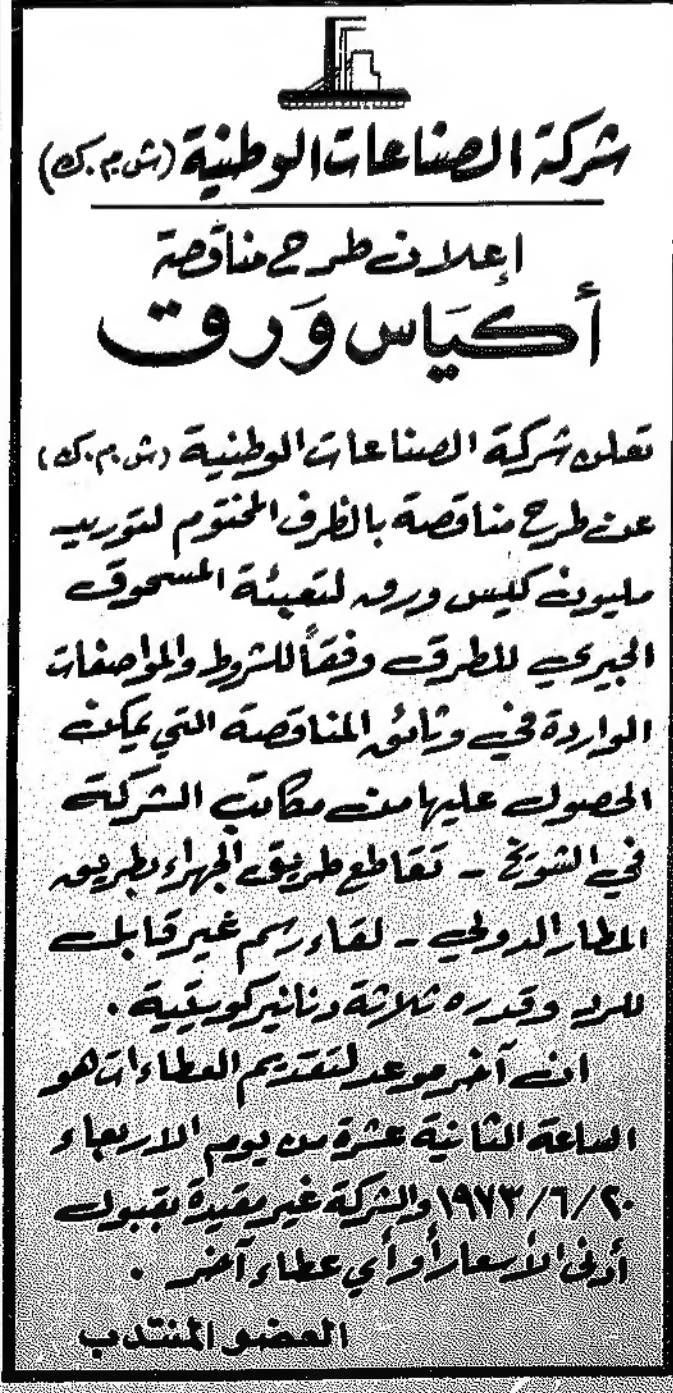 شركة الصناعات الوطنية (ش.م.ك)
إعلان طرح مناقصة
أكياس ورق
تعلن شركة الصناعات الوطنية (ش.م.ك)
عن طرح مناقصة بالظرف المختوم لتوريد
مليون كيس ورق لتعبئة المسحوق
الجيري للطرق وفقاً للشروط والمواصفات
الواردة في وثائق المناقصة التي يمكن
الحصول عليها من مكاتب الشركة
في الشويخ - تقاطع طريق الجهراء بطريق
المطار الدولي - لقاء رسم غير قابل
للرد وقدره ثلاثة دنانير كويتية .
ان آخر موعد لتقديم العطاءات هو
الساعة الثانية عشرة من يوم الاربعاء
٢٠/٦/١٩٧٣ والشركة غير مقيدة بقبول
أدنى الأسعار أو أي عطاء آخر .
العضو المنتدب